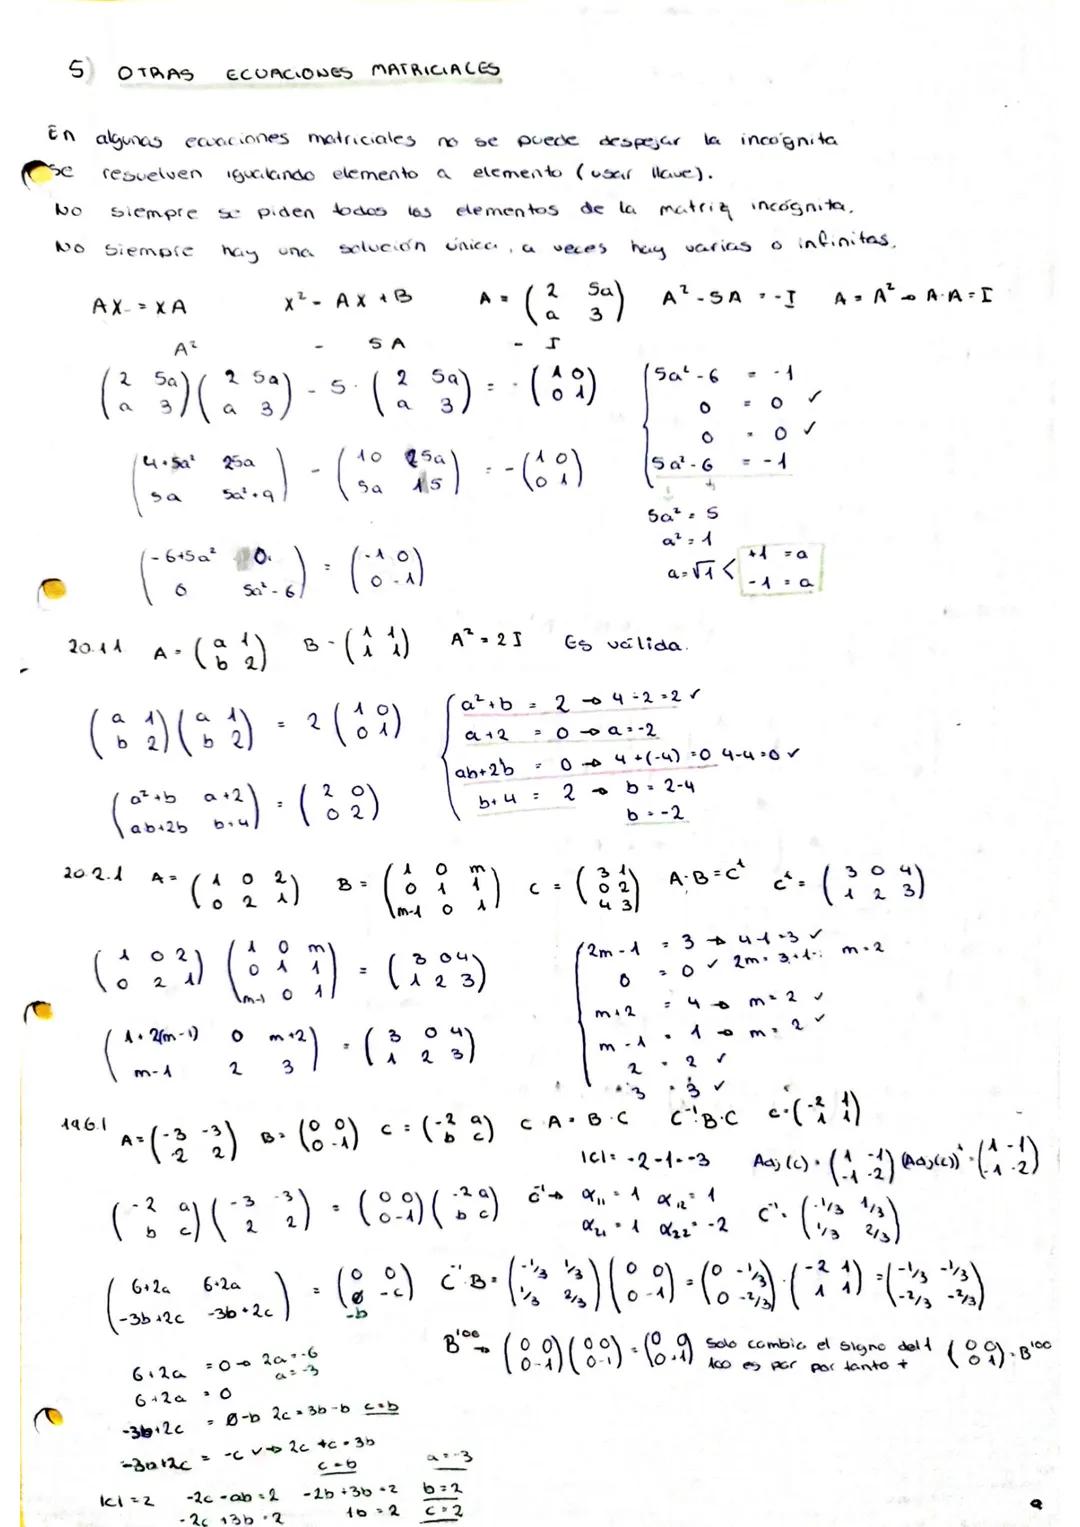 5) OTRAS ECUACIONES MATRICIALES
En algunas ecuaciones matriciales no se puede despejar la incógnita
se resuelven igualando elemento a elemento (usar llave).
No siempre se piden todos los elementos de la matriz incógnita.
No siempre hay una solución única, a veces hay varias o infinitas.
AX = XA X² - AX + B A = (2 5a / a 3) A² - 5A = -I A = A² → A·A = I
A² - 5A = - I
(2 5a / a 3)(2 5a / a 3) - 5·(2 5a / a 3) = -(1 0 / 0 1)
{5a² - 6 = -1
0 = 0 ✓
0 = 0 ✓
5a² - 6 = -1
(4+5a² 25a / 5a 5a²+9) - (10 25a / 5a 15) = -(1 0 / 0 1)
5a² = 5
a² = 1
a = √1 < +1 = a
-1 = a
(-6+5a² 0 / 0 5a²-6) = (-1 0 / 0 -1)
20.1.1 A = (a 1 / b 2) B = (1 1 / 1 1) A² = 2I Es válida.
(a 1 / b 2)(a 1 / b 2) = 2(1 0 / 0 1)
(a²+b a+2 / ab+2b b+4) = (2 0 / 0 2)
{a²+b = 2 → 4-2=2 ✓
a+2 = 0 → a=-2
ab+2b = 0 → 4+(-4)=0 4-4=0 ✓
b+4 = 2 → b = 2-4
b = -2
20.2.1 A = (1 0 2 / 0 2 1) B = (1 0 m / 0 1 1 / m-1 0 1) C = (3 1 / 0 2 / 4 3) A·B = Cᵗ Cᵗ = (3 0 4 / 1 2 3)
(1 0 2 / 0 2 1)(1 0 m / 0 1 1 / m-1 0 1) = (3 0 4 / 1 2 3)
(1+2(m-1) 0 m+2 / m-1 2 3) = (3 0 4 / 1 2 3)
{2m-1 = 3 → 4-1=3 ✓
0 = 0 ✓ 2m = 3+1 m=2
m+2 = 4 → m=2 ✓
m-1 = 1 → m=2 ✓
2 = 2 ✓
3 = 3 ✓
19.6.1 A = (-3 -3 / 2 2) B = (0 0 / 0 -1) C = (-2 a / b c) C A = B·C C⁻¹B·C C = (-2 1 / 1 1)
|C| = -2-1=-3 Adj(C) = (1 -1 / -1 -2) (Adj(C))ᵗ = (1 -1 / -1 -2)
(-2 a / b c)(-3 -3 / 2 2) = (0 0 / 0 -1)(-2 a / b c)
C⁻¹ → α₁₁ = 1 α₁₂ = 1
α₂₁ = 1 α₂₂ = -2 C⁻¹ = (-1/3 1/3 / 1/3 2/3)
(6+2a 6+2a / -3b+2c -3b+2c) = (0 0 / -b -c)
C⁻¹·B = (-1/3 1/3 / 1/3 2/3)(0 0 / 0 -1) = (0 -1/3 / 0 -2/3)·(-2 1 / 1 1) = (-1/3 -1/3 / -2/3 -2/3)
B¹⁰⁰ → (0 0 / 0 -1)(0 0 / 0 -1) = (0 0 / 0 1) Solo cambia el signo del 1
100 es par por tanto + (0 0 / 0 1) = B¹⁰⁰
6+2a = 0 → 2a = -6
a = -3
6+2a = 0
-3b+2c = 0-b 2c = 3b-b c=b
-3b+2c = -c ✓ → 2c+c = 3b
c=b
|C| = 2 -2c-ab=2 -2b+3b=2
-2c+3b=2 1b=2
a=-3
b=2
c=2
9